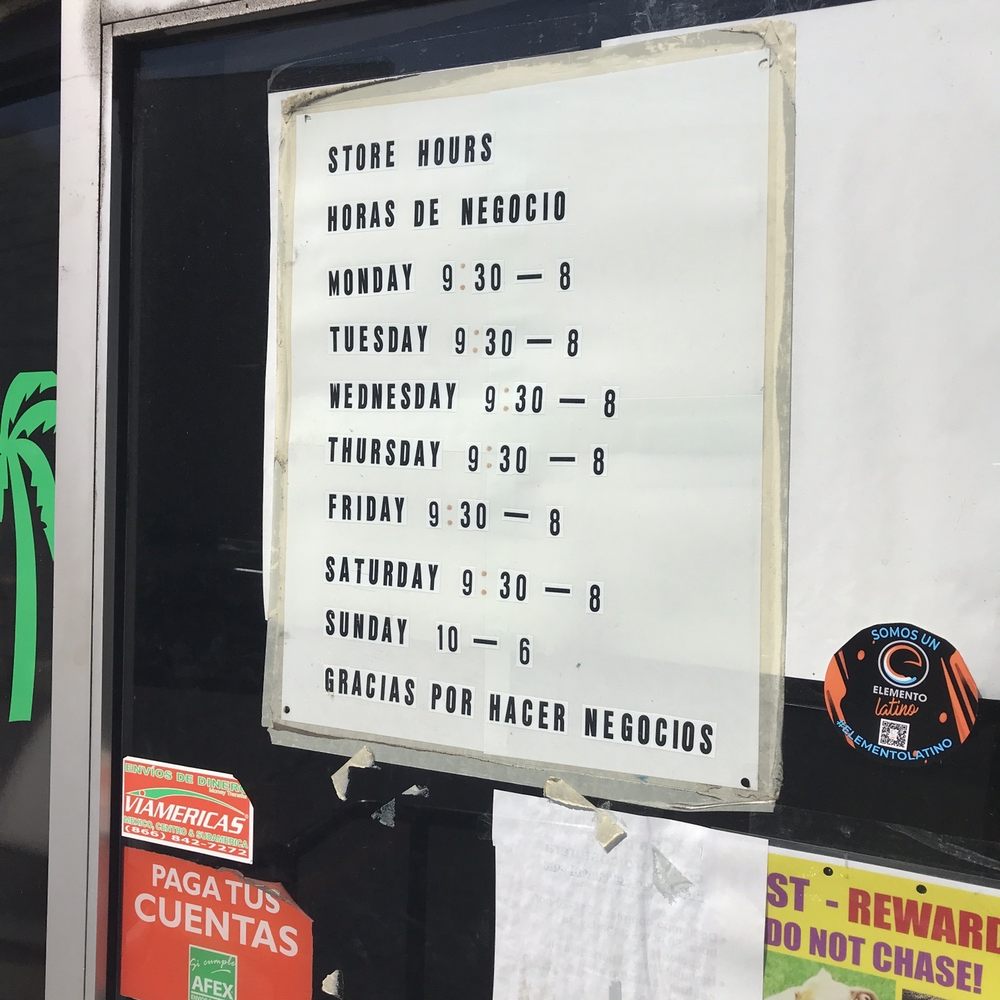 STORE HOURS
HORAS DE NEGOCIO
MONDAY 9:30 — 8
TUESDAY 9:30 — 8
WEDNESDAY 9:30 — 8
THURSDAY 9:30 — 8
FRIDAY 9:30 — 8
SATURDAY 9:30 — 8
SUNDAY 10 — 6
GRACIAS POR HACER NEGOCIOS
SOMOS UN
ELEMENTO
latino
#ELEMENTOLATINO
ENVÍOS DE DINER
Money Transfer
VIAMERICAS
MEXICO, CENTRO & SUDAMERICA
(866) 842-7272
PAGA TUS
CUENTAS
Si cumple
AFEX
ST - REWARD
DO NOT CHASE!